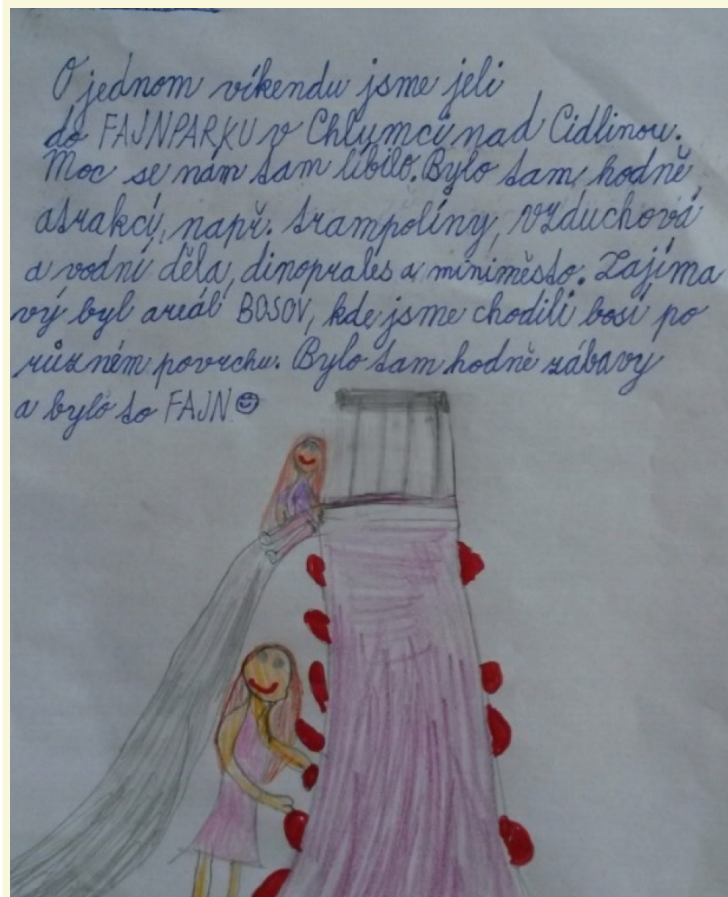 O jednom víkendu jsme jeli
do FAJNPARKU v Chlumci nad Cidlinou.
Moc se nám tam líbilo. Bylo tam hodně
atrakcí, např. trampolíny, vzduchová
a vodní děla, dinoprales a miniměsto. Zajíma
vý byl areál BOSOV, kde jsme chodili bosí po
různém povrchu. Bylo tam hodně zábavy
a bylo to FAJN☺